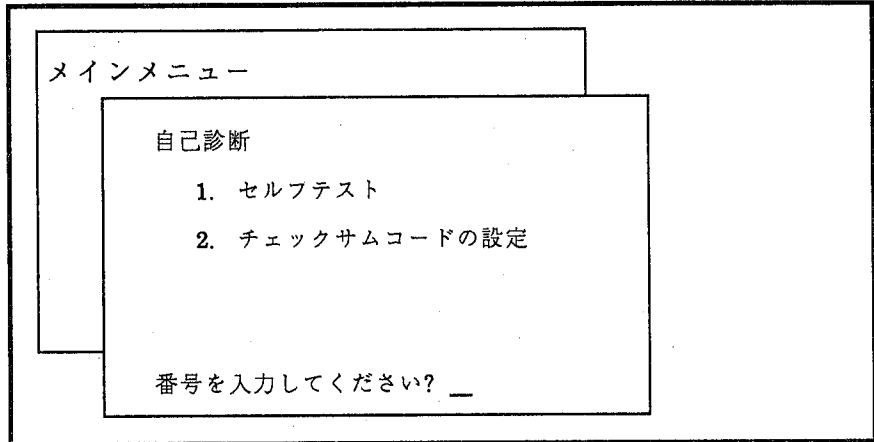 メインメニュー
自己診断
1. セルフテスト
2. チェックサムコードの設定
番号を入力してください? _